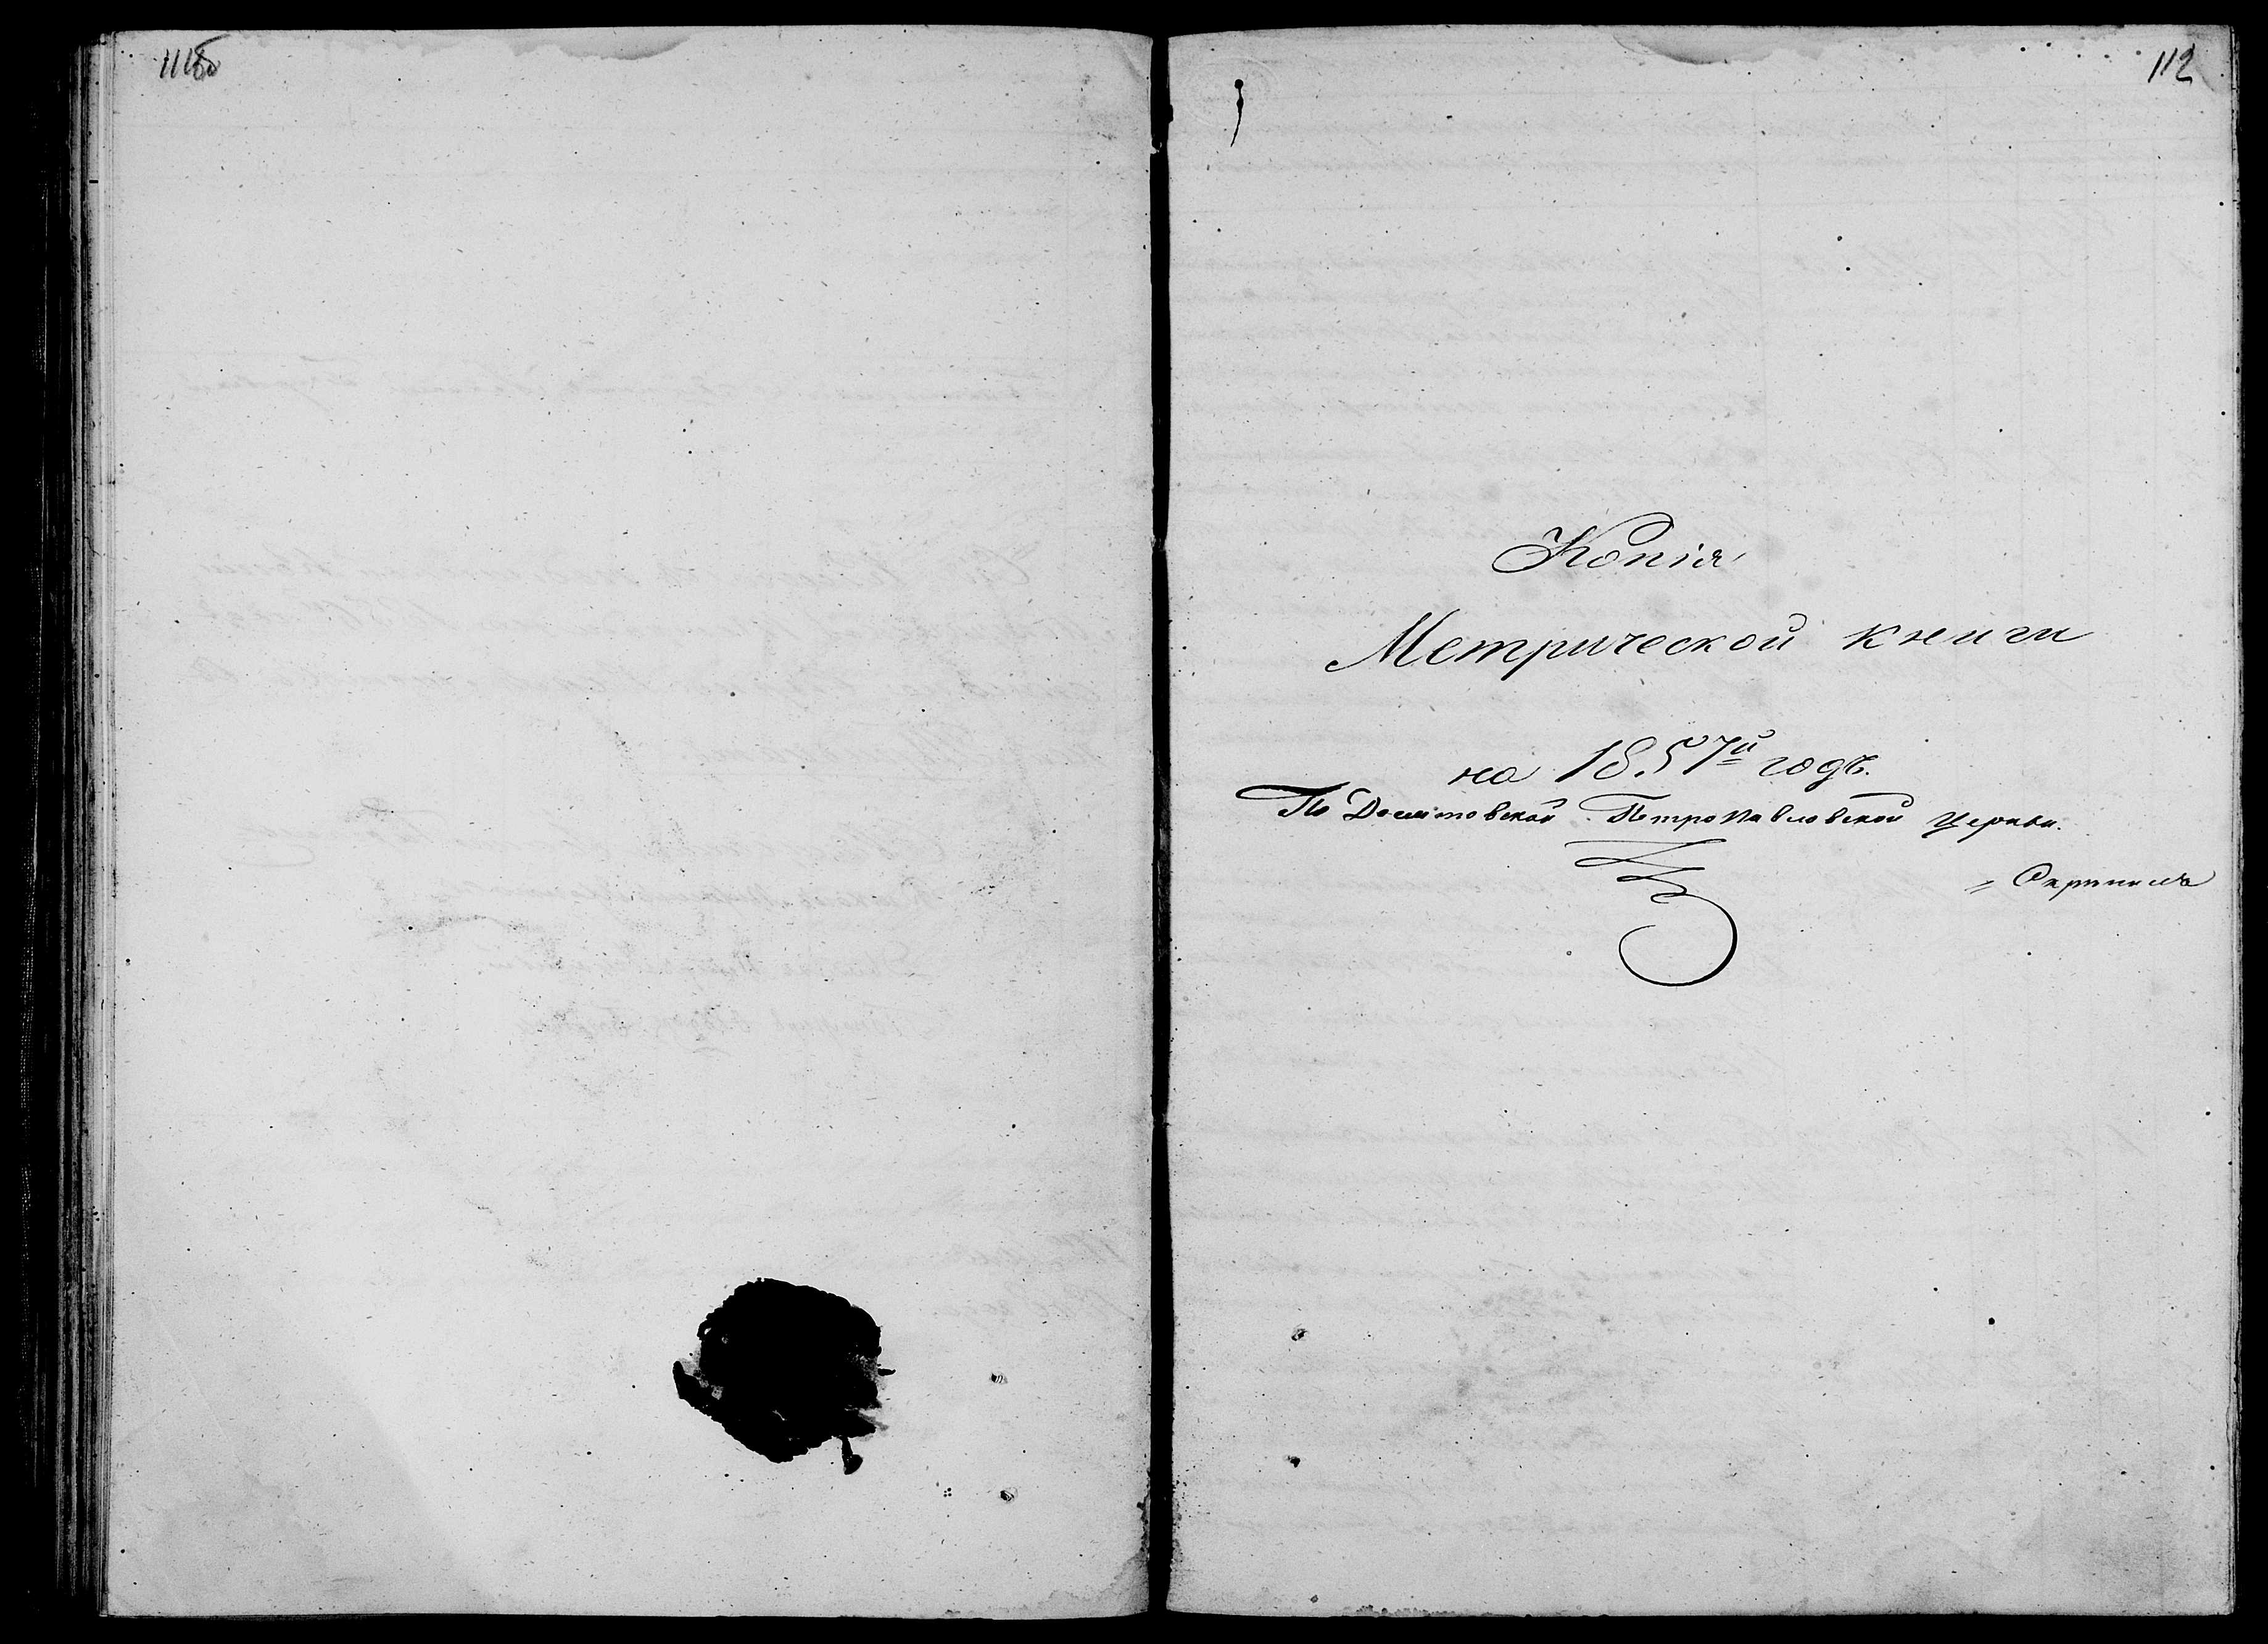 111об
112
Копія
Метрической книги
на 1857й годъ.
По Петропавловской Церкви.
Скрепилъ